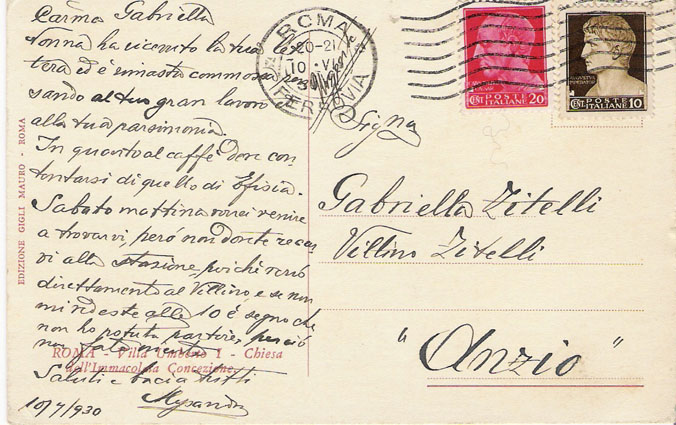 Carma Gabriella
Nonna ha ricevuto la tua let
tera ed è rimasta commossa pen
sando al tuo gran lavoro
alla tua parsimonia.
In quanto al caffè deve con
tentarsi di quello di Efisia.
Sabato mattina vorrei venire
a trovarvi però non dovete recar
vi alla stazione, poichè verrò
direttamente al Villino e se non
mi vedeste alle 10 è segno che
non ho potuto partire, perciò
Saluti e bacia tutti
10/7/930
EDIZIONE GIGLI MAURO - ROMA
ROMA - Villa Umberto I - Chiesa
dell'Immacolata Concezione
ROMA
20-21
10
FERROVIA
POSTE
ITALIANE
CENT. 20
POSTE
ITALIANE
CENT. 10
Sigña
Gabriella Zitelli
Villino Zitelli
"Anzio"